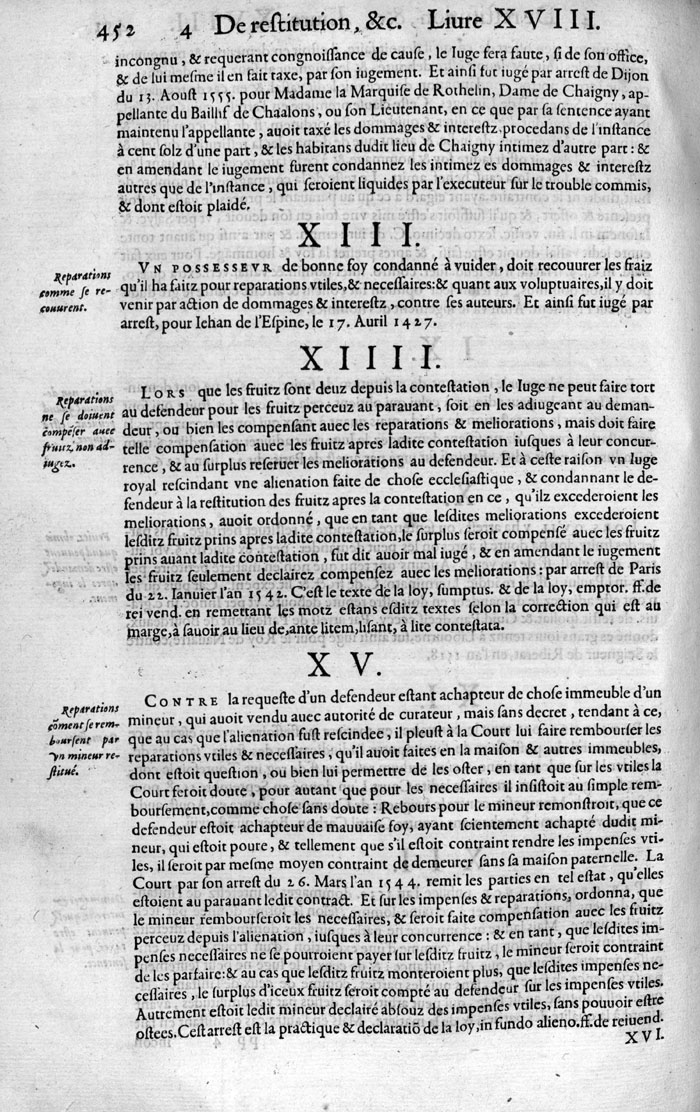 452 4 De restitution, &c. Liure XVIII.
incongnu, & requerant congnoissance de cause, le Iuge fera faute, si de son office,
& de lui mesme il en fait taxe, par son iugement. Et ainsi fut iugé par arrest de Dijon
du 13. Aoust 1555. pour Madame la Marquise de Rothelin, Dame de Chaigny, ap-
pellante du Baillif de Chaalons, ou son Lieutenant, en ce que par sa sentence ayant
maintenu l'appellante, auoit taxé les dommages & interestz procedans de l'instance
à cent solz d'une part, & les habitans dudit lieu de Chaigny intimez d'autre part: &
en amendant le iugement furent condannez les intimez es dommages & interestz
autres que de l'instance, qui seroient liquides par l'executeur sur le trouble commis,
& dont estoit plaidé.
XIII.
Reparations
comme se re-
couurent.
VN POSSESSEVR de bonne foy condanné à vuider, doit recouurer les fraiz
qu'il ha faitz pour reparations vtiles, & necessaires: & quant aux voluptuaires, il y doit
venir par action de dommages & interestz, contre ses auteurs. Et ainsi fut iugé par
arrest, pour Iehan de l'Espine, le 17. Auril 1427.
XIIII.
Reparations
ne se doiuent
compẽser auec
fruitz non ad-
iugez.
LORS que les fruitz sont deuz depuis la contestation, le Iuge ne peut faire tort
au defendeur pour les fruitz perceuz au parauant, soit en les adiugeant au deman-
deur, ou bien les compensant auec les reparations & meliorations, mais doit faire
telle compensation auec les fruitz apres ladite contestation iusques à leur concur-
rence, & au surplus reseruer les meliorations au defendeur. Et à ceste raison vn Iuge
royal rescindant vne alienation faite de chose ecclesiastique, & condannant le de-
fendeur à la restitution des fruitz apres la contestation en ce, qu'ilz excederoient les
meliorations, auoit ordonné, que en tant que lesdites meliorations excederoient
lesditz fruitz prins apres ladite contestation, le surplus seroit compensé auec les fruitz
prins auant ladite contestation, fut dit auoir mal iugé, & en amendant le iugement
les fruitz seulement declairez compensez auec les meliorations: par arrest de Paris
du 22. Ianuier l'an 1542. C'est le texte de la loy, sumptus. & de la loy, emptor. ff. de
rei vend. en remettant les motz estans esditz textes selon la correction qui est au
marge, à sauoir au lieu de, ante litem, lisant, à lite contestata.
XV.
Reparations
cõment se rem-
boursent par
vn mineur re-
stitué.
CONTRE la requeste d'un defendeur estant achapteur de chose immeuble d'un
mineur, qui auoit vendu auec autorité de curateur, mais sans decret, tendant à ce,
que au cas que l'alienation fust rescindee, il pleust à la Court lui faire rembourser les
reparations vtiles & necessaires, qu'il auoit faites en la maison & autres immeubles,
dont estoit question, ou bien lui permettre de les oster, en tant que sur les vtiles la
Court feroit doute, pour autant que pour les necessaires il insistoit au simple rem-
boursement, comme chose sans doute: Rebours pour le mineur remonstroit, que ce
defendeur estoit achapteur de mauuaise foy, ayant scientement achapté dudit mi-
neur, qui estoit poure, & tellement que s'il estoit contraint rendre les impenses vti-
les, il seroit par mesme moyen contraint de demeurer sans sa maison paternelle. La
Court par son arrest du 26. Mars l'an 1544. remit les parties en tel estat, qu'elles
estoient au parauant ledit contract. Et sur les impenses & reparations, ordonna, que
le mineur rembourseroit les necessaires, & seroit faite compensation auec les fruitz
perceuz depuis l'alienation, iusques à leur concurrence: & en tant, que lesdites im-
penses necessaires ne se pourroient payer sur lesditz fruitz, le mineur seroit contraint
de les parfaire: & au cas que lesditz fruitz monteroient plus, que lesdites impenses ne-
cessaires, le surplus d'iceux fruitz seroit compté au defendeur sur les impenses vtiles.
Autrement estoit ledit mineur declairé absouz des impenses vtiles, sans pouuoir estre
ostees. Cest arrest est la practique & declaratiõ de la loy, in fundo alieno. ff. de rei uend.
XVI.